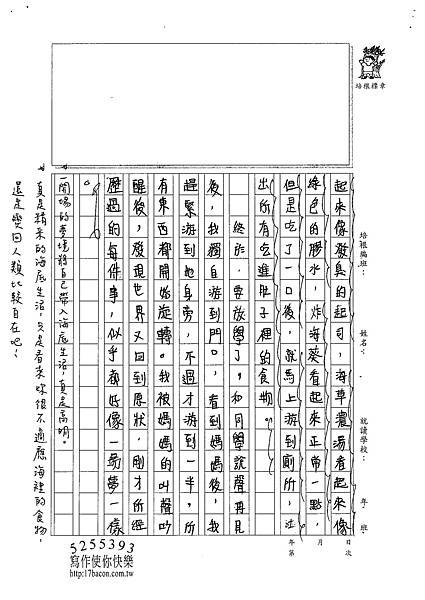 培根標章
培根編班：
姓名：
就讀學校：
年
班
起來像發臭的起司，海草濃湯看起來像
綠色的膠水，炸海葵看起來正常一點，
但是吃了一口後，就馬上游到廁所，吐
出所有吃進肚子裡的食物。
終於，要放學了，和同學說聲再見
後，我獨自游到門口，看到媽媽後，我
趕緊游到她身旁，不過才游到一半，所
有東西都開始旋轉。我被媽媽的叫聲吵
醒後，發現世界又回到原狀，剛才所經
歷過的每件事，似乎都好像一場夢一樣
。
開場的夢境將自己帶入海底生活，真是高明。
真是精采的海底生活，只是看來妳很不適應海裡的食物，
還是變回人類比較自在吧！
年 月 日
第 次
5255393
寫作使你快樂
http://17bacon.com.tw